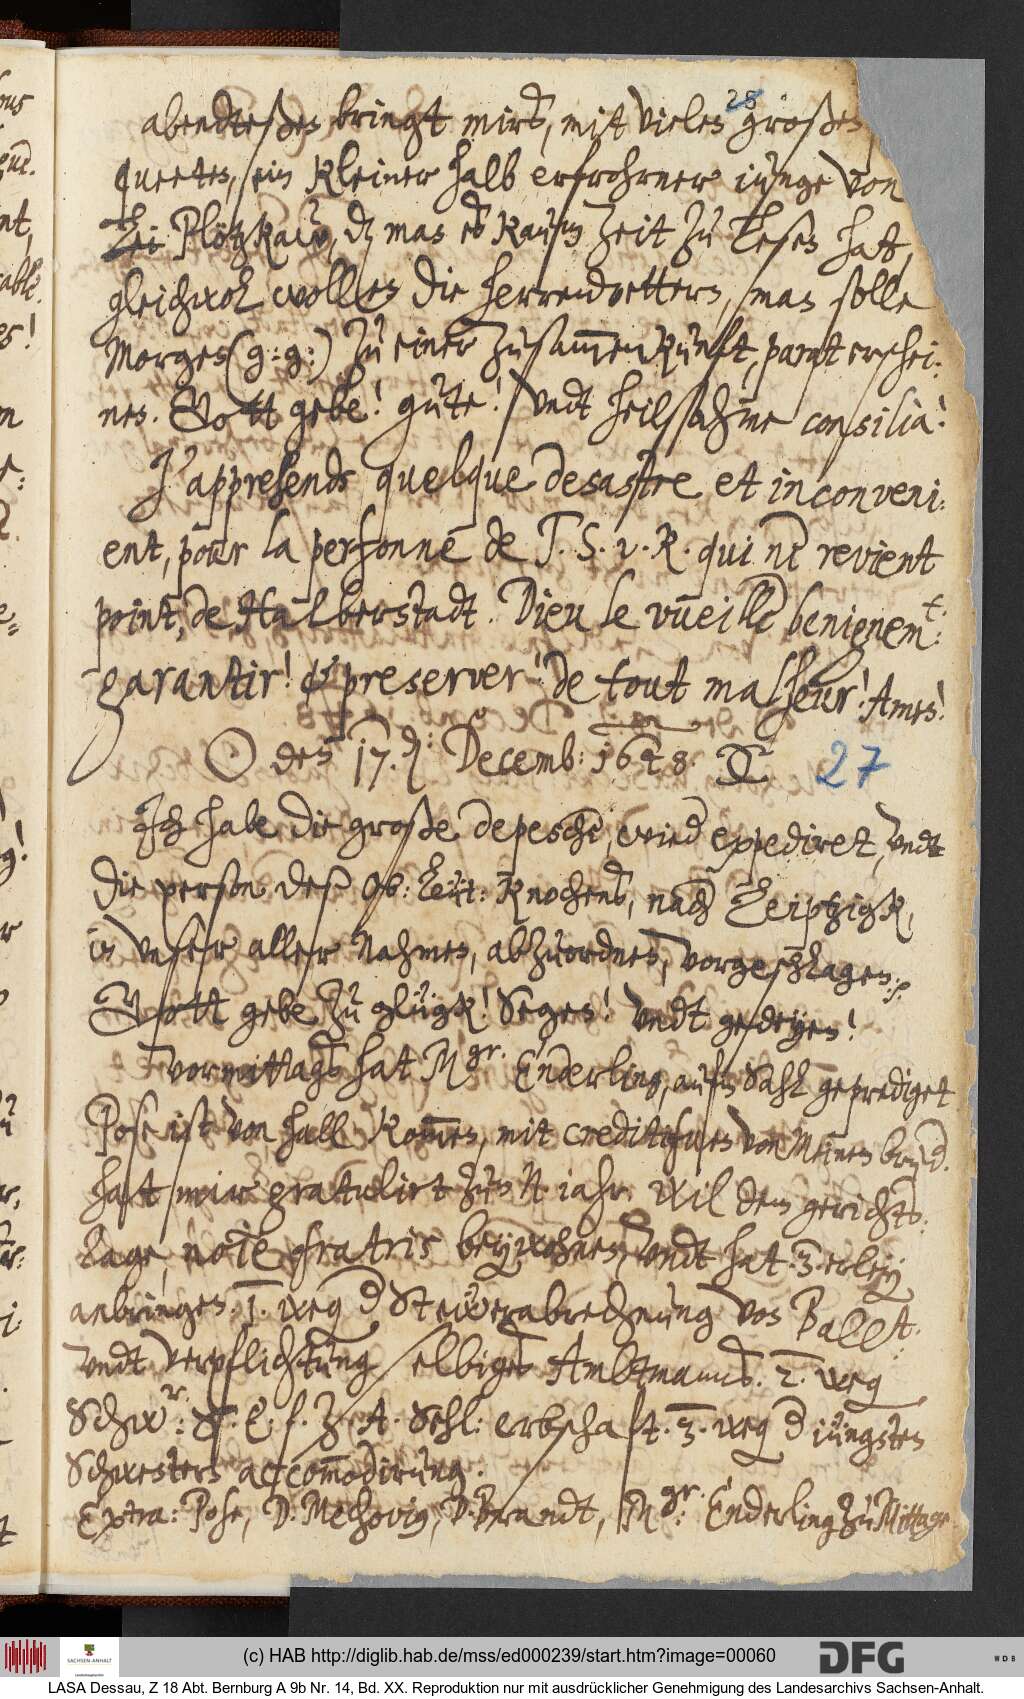 28
abendteßen, bringt mirs, mit vielen großen
queeten, ein kleiner halb erfrohrner iunge von
Plötzkaw, dz man es kaum zeit zu lesen hat,
gleichwol wollen die herrenvettern, man solle
Morgen (g: g:) zu einer Zusammenkunft, parat erschei:
nen. Gott gebe! gute! undt heilsahme consilia!
J'apprehends quelque desastre et inconveni:
ent, pour la personne de T. S. v. R. qui ne revient
point, de Halberstadt. Dieu le vueille benignem.t:
garantir! & preserver! de tout malheur! Amen!
☉ den 17.d: Decemb: 1648. 27
Ich habe die große depesche, wied expediret, undt
die person deß Ob: Leüt: Knochens, nach Leiptzigk,
in unser aller Nahmen, abzuordnen, vorgeschlagen.
Gott gebe zu glügk! Segen! undt gedeyen!
Vormittags hat Mgr. Enderling, aufm Sahl geprediget
Pose ist von hall kommen, mit creditifuen von Meinem brud.
hat mir gratulirt zum N iahr. Wil dem gerichts:
tage, noie fratris beywohnen, undt hat 3.erley
anbringen. 1. weg d Steüerabrechnung von Ballst:
undt verpflichtung selbigen Ambtmanns. 2. weg
Schwr: S. E. f. Z. A. Sehl: erbschaft. 3. weg d iüngsten
Schwestern accommodirung.
Extra: Pose, D. Mechovig, D. Brandt, Mgr: Enderling zu Mittage
(c) HAB http://diglib.hab.de/mss/ed000239/start.htm?image=00060
SACHSEN-ANHALT
DFG
WDB
LASA Dessau, Z 18 Abt. Bernburg A 9b Nr. 14, Bd. XX. Reproduktion nur mit ausdrücklicher Genehmigung des Landesarchivs Sachsen-Anhalt.